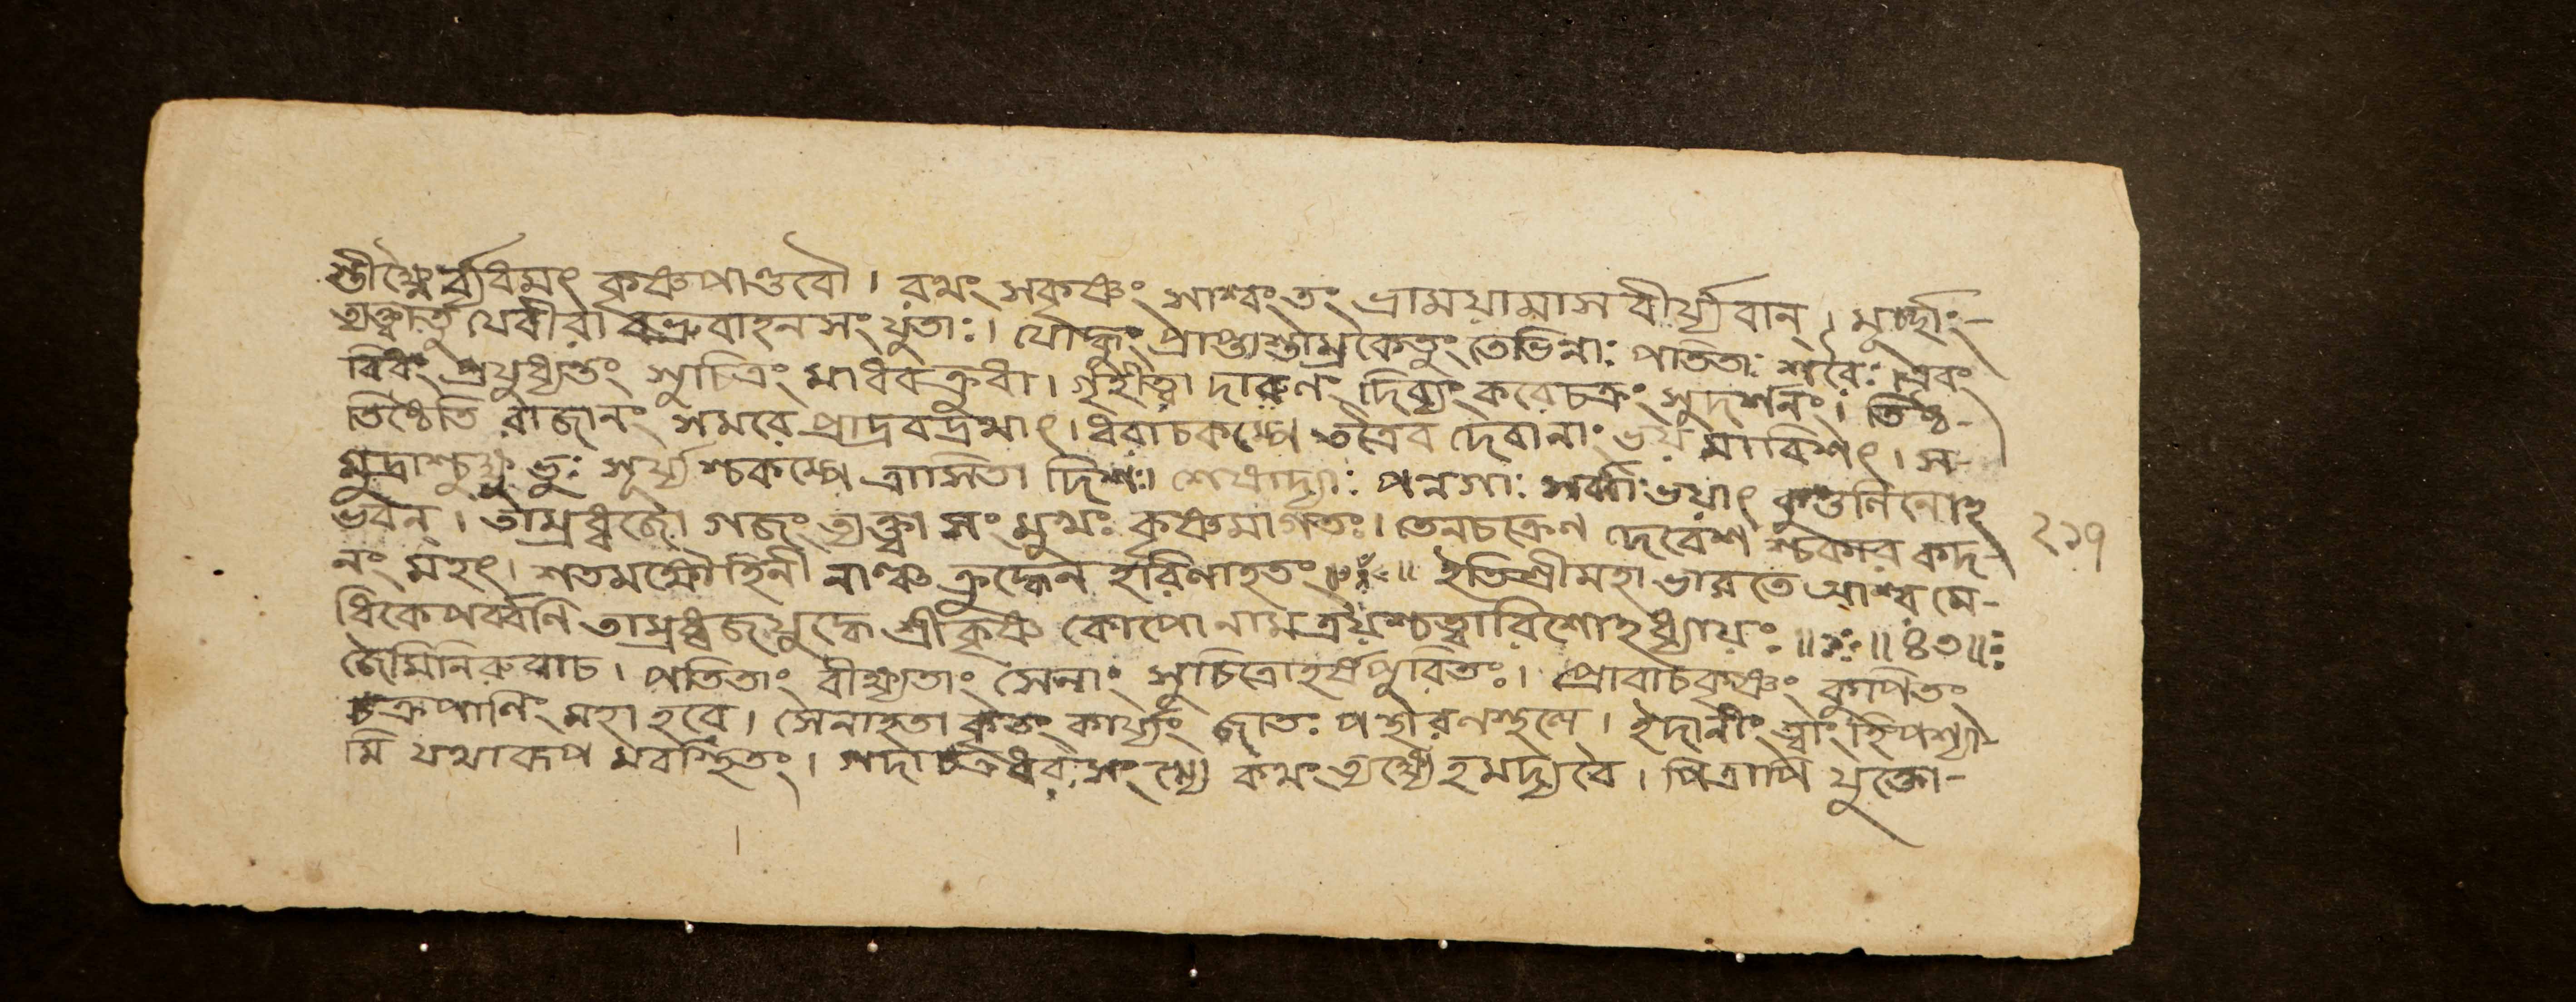 স্তীক্ষ্ণৈর্ব্যধমৎ কৃষ্ণপাণ্ডবৌ। রথং সকৃষ্ণং সাশ্বং তং ভ্রাময়ামাস বীর্য্যবান্। মূর্চ্ছাং-
ত্যক্ত্বাতু যেবীরা বভ্রুবাহনসংযুতাঃ। যোদ্ধুং প্রাপ্তাস্তাম্রকেতুং তেভিন্নাঃ পাতিতাঃ শরৈঃ। এবং
বিধং প্রযুধ্যন্তং সুচিত্রং মাধবক্রুধা। গৃহীত্বা দারুণং দিব্যং করেচক্রং সুদর্শনং। তিষ্ঠ-
তিষ্ঠেতি রাজানং সমরে প্রাদ্রবদ্রথাৎ। ধরাচকম্পে তত্রৈব দেবানাং ভয়মাবিশৎ। স-
মুদ্রাশ্চুক্ষুভুঃ সূর্য্যশ্চকম্পে ত্রাসিতা দিশঃ। শেষাদ্যাঃ পন্নগাঃ সর্ব্বে ভয়াৎ কুণ্ডলিনোহ
ভবন্। তাম্রধ্বজো গজং ত্যক্ত্বা সংমুখঃ কৃষ্ণমাগতঃ। তেনচক্রেণ দেবেশ শ্চকার কদ-
নং মহৎ। শতমক্ষৌহিনী নাঞ্চ ক্রুদ্ধেন হরিণাহতং॥ঃ॥ ইতিশ্রীমহাভারতে আশ্বমে-
ধিকেপর্ব্বণি তাম্রধ্বজযুদ্ধে শ্রীকৃষ্ণ কোপো নাম ত্রয়শ্চত্বারিশোহধ্যায়ঃ॥ঃ॥৪৩॥ঃ
জৈমিনিরুবাচ। পতিতাং বীক্ষ্যতাং সেনাং সুচিত্রোহর্ষপূরিতঃ। প্রোবাচকৃষ্ণং কুপিতং
চক্রপাণিং মহাহবে। সেনাহতা কৃতং কার্য্যং জাতঃ রণস্থলে। ইদানীং ত্বাং হি পশ্যা-
মি যথারূপ মবস্থিতং। গদাচক্রধরং সংখ্যে কথং ত্যক্ষ্যেহমদ্যবৈ। পিত্রাপি যুক্তো-
২১৭